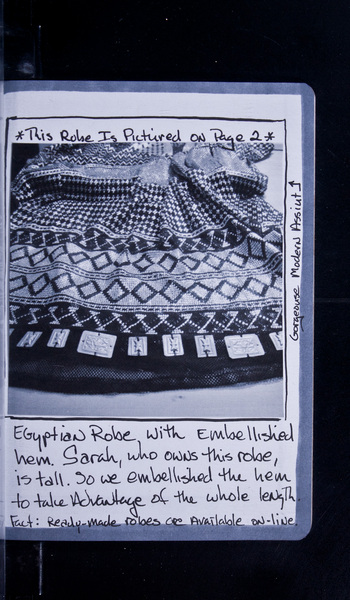 *This Robe Is Pictured on Page 2*
Gorgeouse Modern Assiut!
Egyptian Robe, with Embellished
hem. Sarah, who owns this robe,
is tall. So we embellished the hem
to take Advantage of the whole length.
Fact: Ready-made robes are Available on-line.